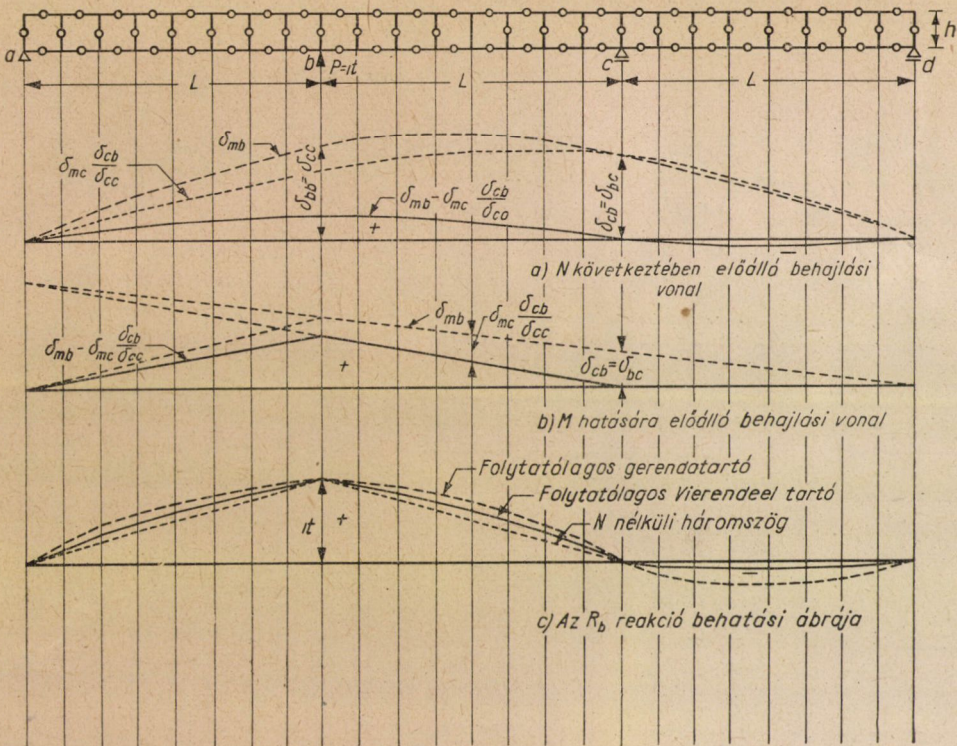 a b P=1t c d h
L L L
δmb
δmc δcb/δcc
δbb=δcc
δmb-δmc δcb/δco
δcb=δbc
+
−
a) N következtében előálló behajlási
vonal
δmb
δmc δcb/δcc
δmb-δmc δcb/δcc
+
δcb=δbc
b) M hatására előálló behajlási vonal
Folytatólagos gerendatartó
Folytatólagos Vierendeel tartó
N nélküli háromszög
1t
+
−
c) Az Rb reakció behatási ábrája